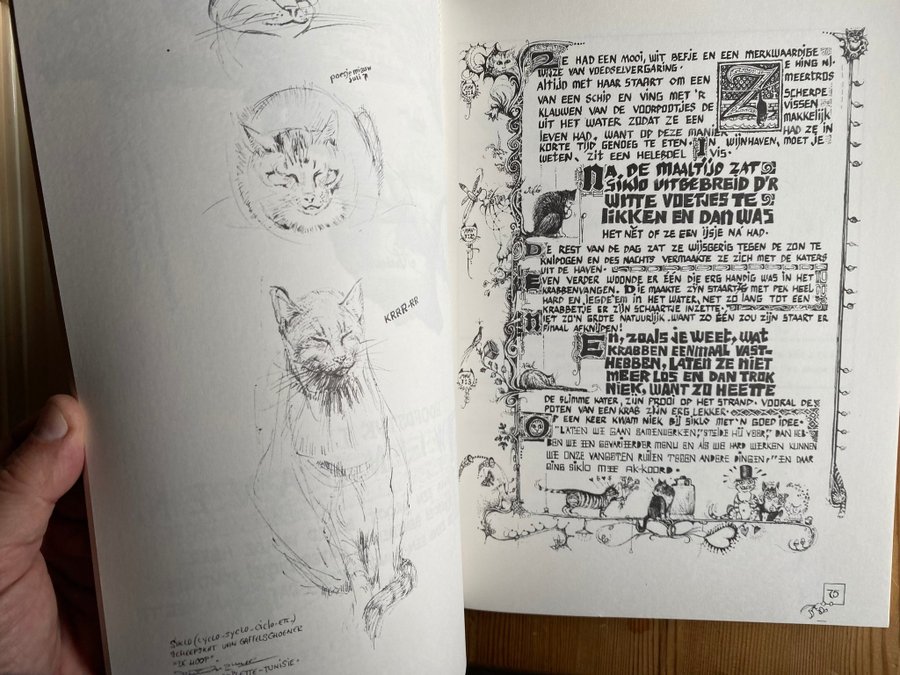 poesje
juli
KRRR-RR
SCHEEPSKAT VAN GAFFELSCHOENER
"DE HOOP"
TUNISIE.
ZE HAD EEN MOOI, WIT BEFJE EN EEN MERKWAARDIGE
WIJZE VAN VOEDSELVERGARING. ZE HING NL.
ALTIJD MET HAAR STAART OM EEN MEERTROS
VAN EEN SCHIP EN VING MET 'R SCHERPE
KLAUWEN VAN DE VOORPOOTJES DE VISSEN
UIT HET WATER ZODAT ZE EEN MAKKELIJK
LEVEN HAD. WANT OP DEZE MANIER HAD ZE IN
KORTE TIJD GENOEG TE ETEN. IN WIJNHAVEN, MOET JE
WETEN, ZIT EEN HELEBOEL VIS.
NA, DE MAALTIJD ZAT
SIKLO UITGEBREID D'R
WITTE VOETJES TE
LIKKEN EN DAN WAS
HET NÈT OF ZE EEN IJSJE NA HAD.
DE REST VAN DE DAG ZAT ZE WIJSGERIG TEGEN DE ZON TE
KNIPOGEN EN DES NACHTS VERMAAKTE ZE ZICH MET DE KATERS
UIT DE HAVEN.
EVEN VERDER WOONDE ER ÉÉN DIE ERG HANDIG WAS IN HET
KRABBENVANGEN. DIE MAAKTE ZIJN STAARTJE MET PEK HEEL
HARD EN LEGDE'EM IN HET WATER, NET ZO LANG TOT EEN
KRABBETJE ER ZIJN SCHAARTJE INZETTE.
NIET ZO'N GROTE NATUURLIJK. WANT ZO ÉÉN ZOU ZIJN STAART ER
FINAAL AFKNIJPEN!
EN, ZOALS JE WEET, WAT
KRABBEN EENMAAL VAST-
HEBBEN, LATEN ZE NIET
MEER LOS EN DAN TROK
NIEK, WANT ZO HEETTE
DE SLIMME KATER, ZIJN PROOI OP HET STRAND. VOORAL DE
POTEN VAN EEN KRAB ZIJN ERG LEKKER.
OP EEN KEER KWAM NIEK BIJ SIKLO MET'N GOED IDEE.
"LATEN WE GAAN SAMENWERKEN," STELDE HIJ VOOR," DAN HEB-
BEN WE EEN GEVARIEERDER MENU EN ALS WE HARD WERKEN KUNNEN
WE ONZE VANGSTEN RUILEN TEGEN ANDERE DINGEN," EN DAAR
GING SIKLO MEE AK-KOORD.